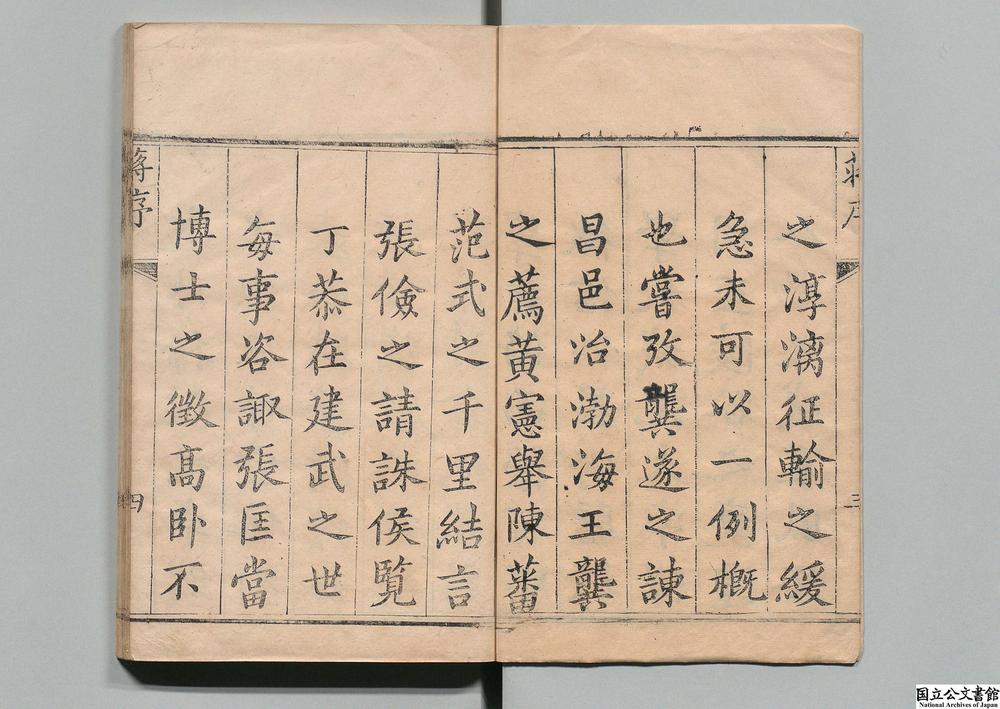 蔣序
三
之淳漓征輸之緩
急未可以一例概
也嘗攷龔遂之諫
昌邑治渤海王龔
之薦黃憲舉陳蕃
范式之千里結言
張儉之請誅侯覽
丁恭在建武之世
每事咨諏張匡當
博士之徵高卧不
蔣序
四
国立公文書館
National Archives of Japan